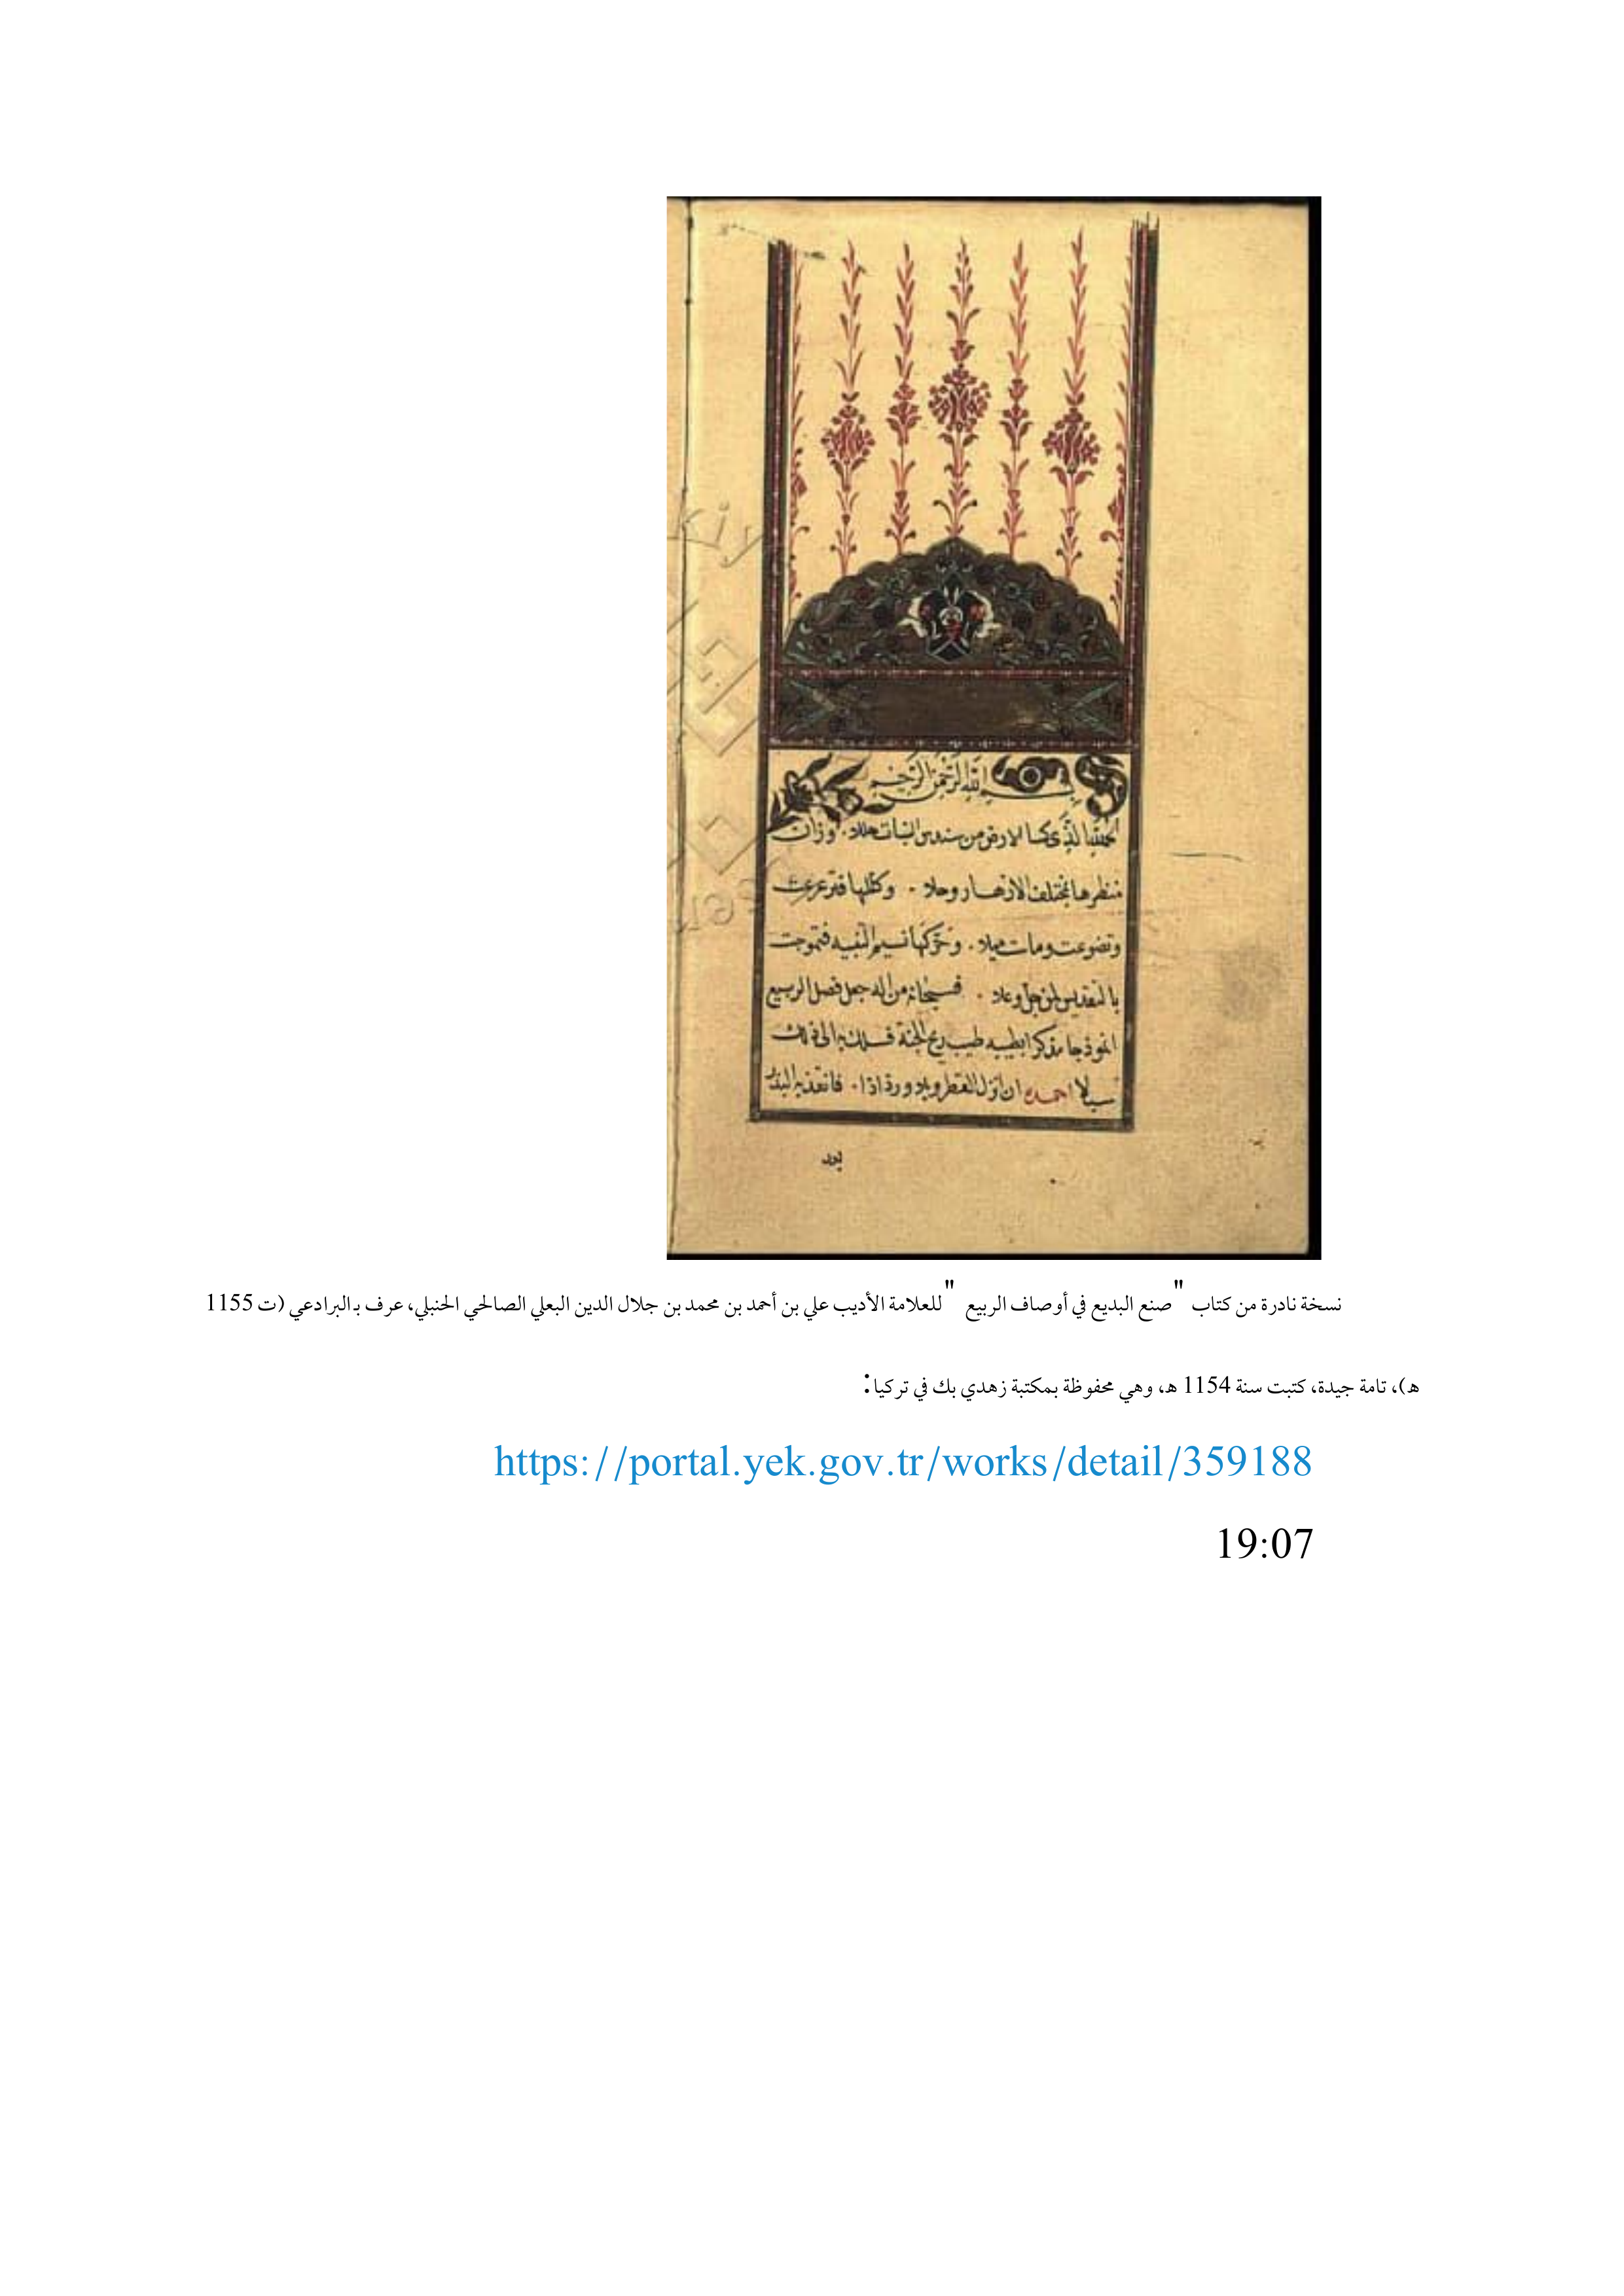 بسم الله الرحمن الرحيم
الذي كسا الارض من سندس النبات حللا. وزان
منظرها بمختلف الازهار وحلا. وكللها فترعرعت
وتضوعت وماست ميلا. وحركها نسيم فتموجت
بالتقديس لمن جل وعلا. فسبحانه من اله جعل فصل الربيع
انموذجا مذكرا بطيبه طيب ريح الجنة الى ذلك
سبلا احمده ان انزل القطر وبلا ورذاذا. فانعقد به
نسخة نادرة من كتاب "صنع البديع في أوصاف الربيع" للعلامة الأديب علي بن أحمد بن محمد بن جلال الدين البعلي الصالحي الحنبلي، عرف بـالبرادعي (ت 1155
هـ)، تامة جيدة، كتبت سنة 1154 هـ، وهي محفوظة بمكتبة زهدي بك في تركيا:
https://portal.yek.gov.tr/works/detail/359188
19:07